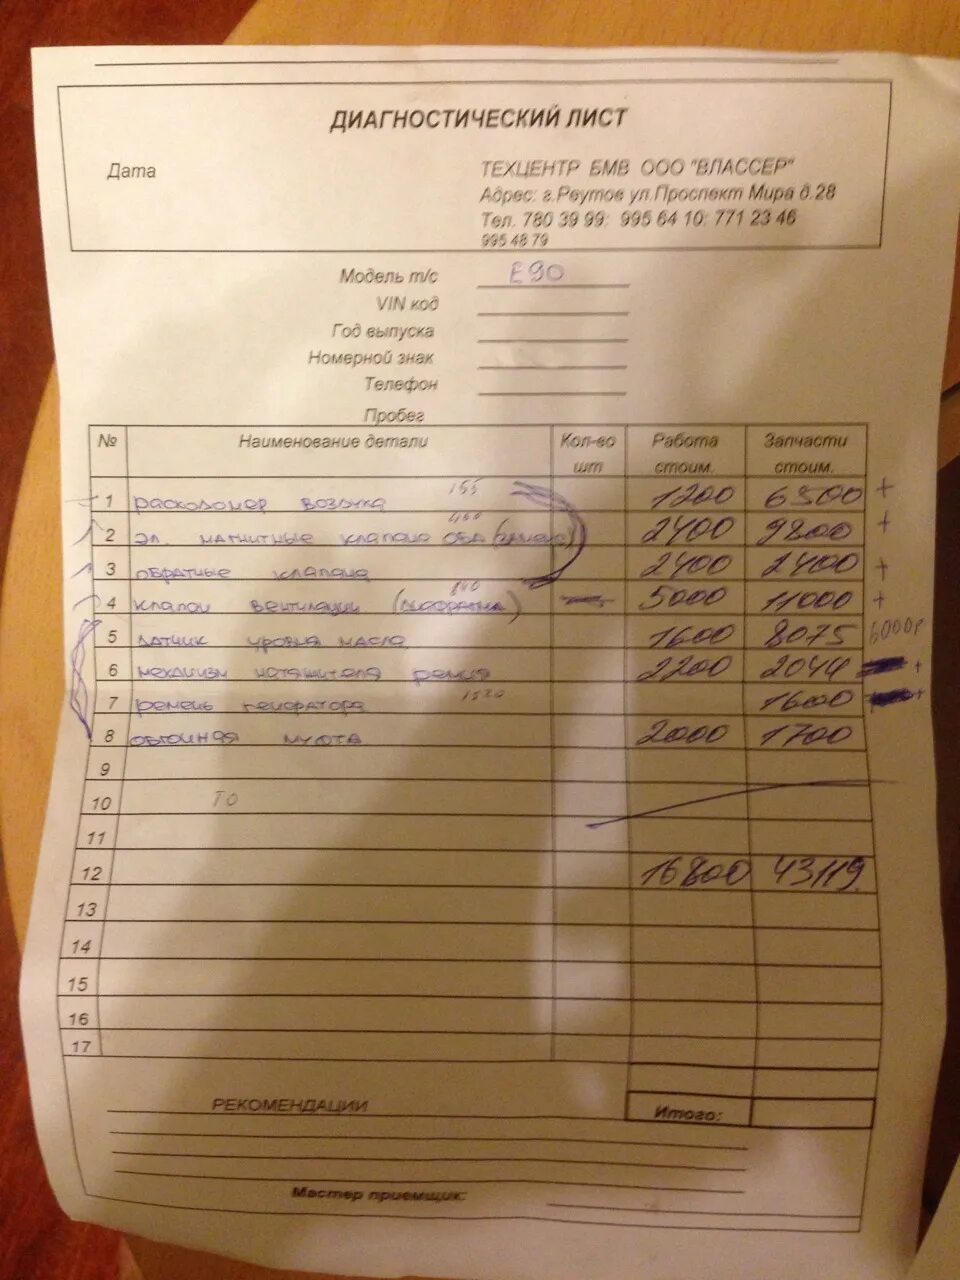 ДИАГНОСТИЧЕСКИЙ ЛИСТ
Дата
ТЕХЦЕНТР БМВ ООО "ВЛАССЕР"
Адрес: г.Реутов ул.Проспект Мира д.28
Тел. 780 39 99: 995 64 10: 771 23 46
995 48 79
Модель т/с E90
VIN код
Год выпуска
Номерной знак
Телефон
Пробег
№ Наименование детали Кол-во шт Работа стоим. Запчасти стоим.
1 расходомер воздуха 155 1200 6500 +
2 эл. магнитные клапана оба 2400 9800 +
3 обратные клапана 2400 2400 +
4 клапан вентиляции 840 5000 11000 +
5 датчик уровня масла 1600 8075 6000р
6 механизм натяжителя ремня 2200 2044 +
7 ремень генератора 1520 1600 +
8 обгонная муфта 2000 1700
9
10 ТО
11
12 16800 43119
13
14
15
16
17
РЕКОМЕНДАЦИИ
Итого:
Мастер приемщик: